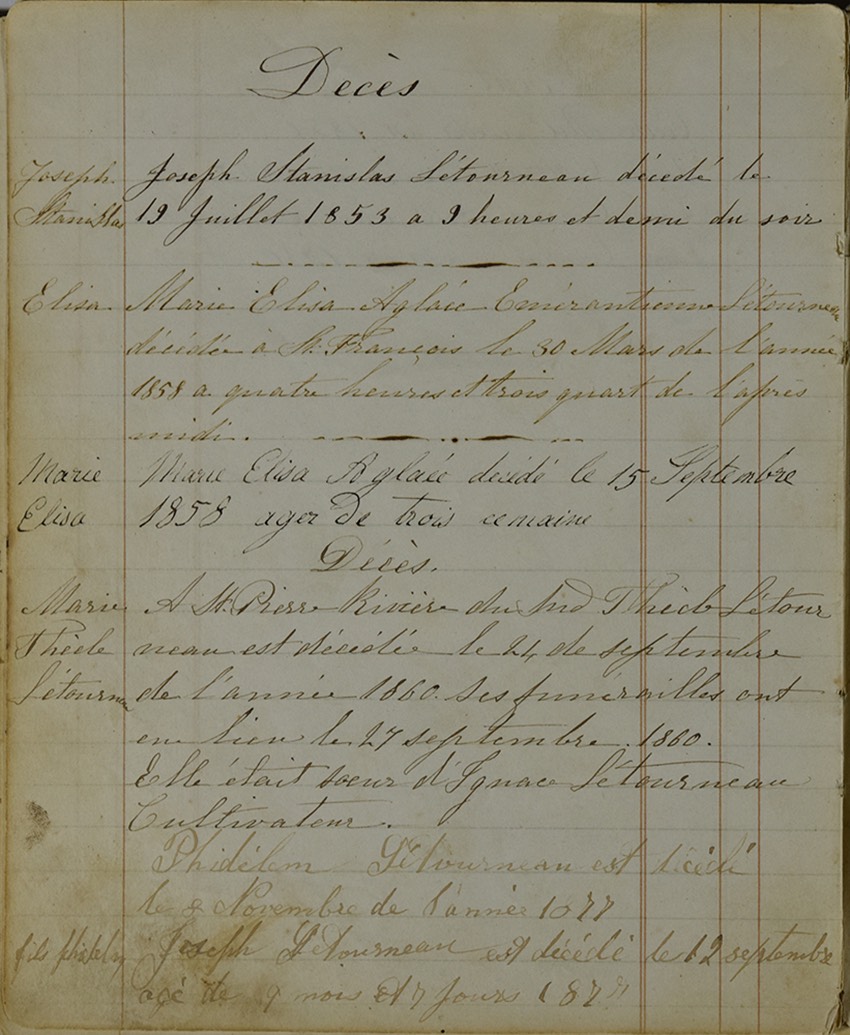 Decès
Joseph Joseph Stanislas Létourneau décedé le
Stanislas 19 Juillet 1853 a 9 heures et demi du soir
Elisa Marie Elisa Aglaée Emérantienne Létourneau
décédée à St. François le 30 Mars de l'année
1858 a quatre heures et trois quart de l'après
midi.
Marie Marie Elisa Aglaée decédé le 15 Septembre
Elisa 1858 ager de trois cemaine
Décès.
Marie A St. Pierre Rivière du Sud Thècle Létour
Thècle neau est décédée le 24 de septembre
Létourneau de l'année 1860. Ses funérailles ont
eu lieu le 27 septembre 1860.
Elle était soeur d'Ignace Létourneau
Cultivateur.
Létourneau est décédé
le 8 Novembre de l'année 1877
fils Joseph Létourneau est décédé le 12 septembre
agé de 9 mois et 7 jours